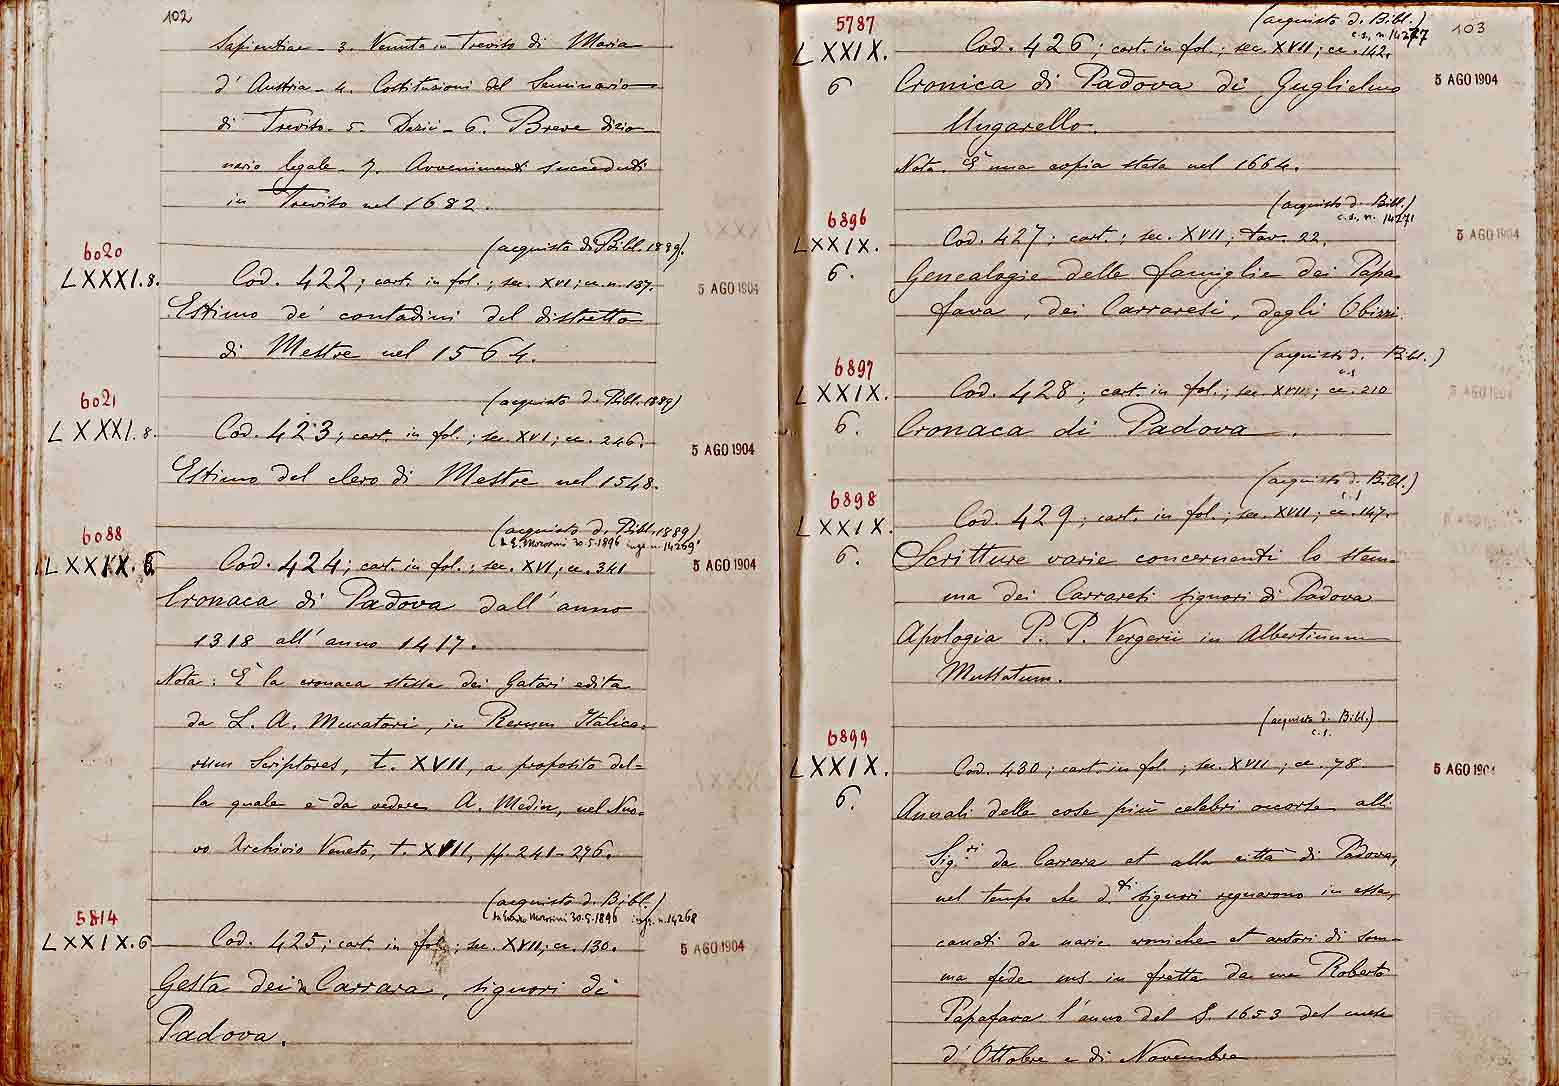 102
Sapientiae - 3. Venuta in Treviso di Maria
d'Austria - 4. Costituzioni del Seminario
di Treviso - 5. Dazii - 6. Breve dizio
nario legale - 7. Avvenimenti succeduti
in Treviso nel 1682.
(acquisto d. Bibl. 1889).
6020
LXXXI.8. Cod. 422; cart. in fol.; sec. XVI; cc. n. 137. 5 AGO 1904
Estimo de' contadini del distretto
di Mestre nel 1564.
(acquisto d. Bibl. 1889)
6021
LXXXI.8. Cod. 423; cart. in fol.; sec. XVI; cc. 246. 5 AGO 1904
Estimo del clero di Mestre nel 1548.
(acquisto d. Bibl. 1889)
6088 Morosini 30.5.1896 ingr. n. 14269
LXXIX.6. Cod. 424; cart. in fol.; sec. XVI; cc. 341 5 AGO 1904
Cronaca di Padova dall'anno
1318 all'anno 1417.
Nota: È la cronaca stessa dei Gatari edita
da L. A. Muratori, in Rerum Italica-
rum Scriptores, t. XVII, a proposito del=
la quale è da vedere A. Medin, nel Nuo=
vo Archivio Veneto, t. XVII, pp. 241-296.
(acquisto d. Bibl.)
5814 Morosini 30.5.1896 ingr. n. 14268
LXXIX.6 Cod. 425; cart. in fol.; sec. XVII; cc. 130. 5 AGO 1904
Gesta dei da Carrara, signori di
Padova.
103
(acquisto d. Bibl.)
5787 c.s., n. 14277
LXXIX. Cod. 426; cart. in fol.; sec. XVII; cc. 142.
6 Cronica di Padova di Guglielmo 5 AGO 1904
Mugarello.
Nota. È una copia stesa nel 1664.
(acquisto d. Bibl.)
6896 c.s., n. 14271
LXXIX. Cod. 427; cart.; sec. XVII; tav. 22. 5 AGO 1904
6. Genealogie delle famiglie dei Papa-
fava, dei Carraresi, degli Obizzi.
(acquisto d. Bibl.)
6897 c.s.
LXXIX. Cod. 428; cart. in fol.; sec. XVII; cc. 210 5 AGO 1904
6. Cronaca di Padova.
(acquisto d. Bibl.)
6898 c.s.
LXXIX. Cod. 429; cart. in fol.; sec. XVII; cc. 147.
6. Scritture varie concernenti lo stem-
ma dei Carraresi signori di Padova
Apologia P. P. Vergerii in Albertinum
Mussatum.
(acquisto d. Bibl.)
6899 c.s.
LXXIX. Cod. 430; cart. in fol.; sec. XVII; cc. 78. 5 AGO 1904
6. Annali delle cose più celebri occorse alli
Sig.ri da Carrara et alla città di Padova,
nel tempo che d.ti signori regnarono in essa,
canati da varie croniche et autori di som-
ma fede ms. in fretta da me Roberto
Papafava l'anno del S. 1653 del mese
d'Ottobre e di Novembre